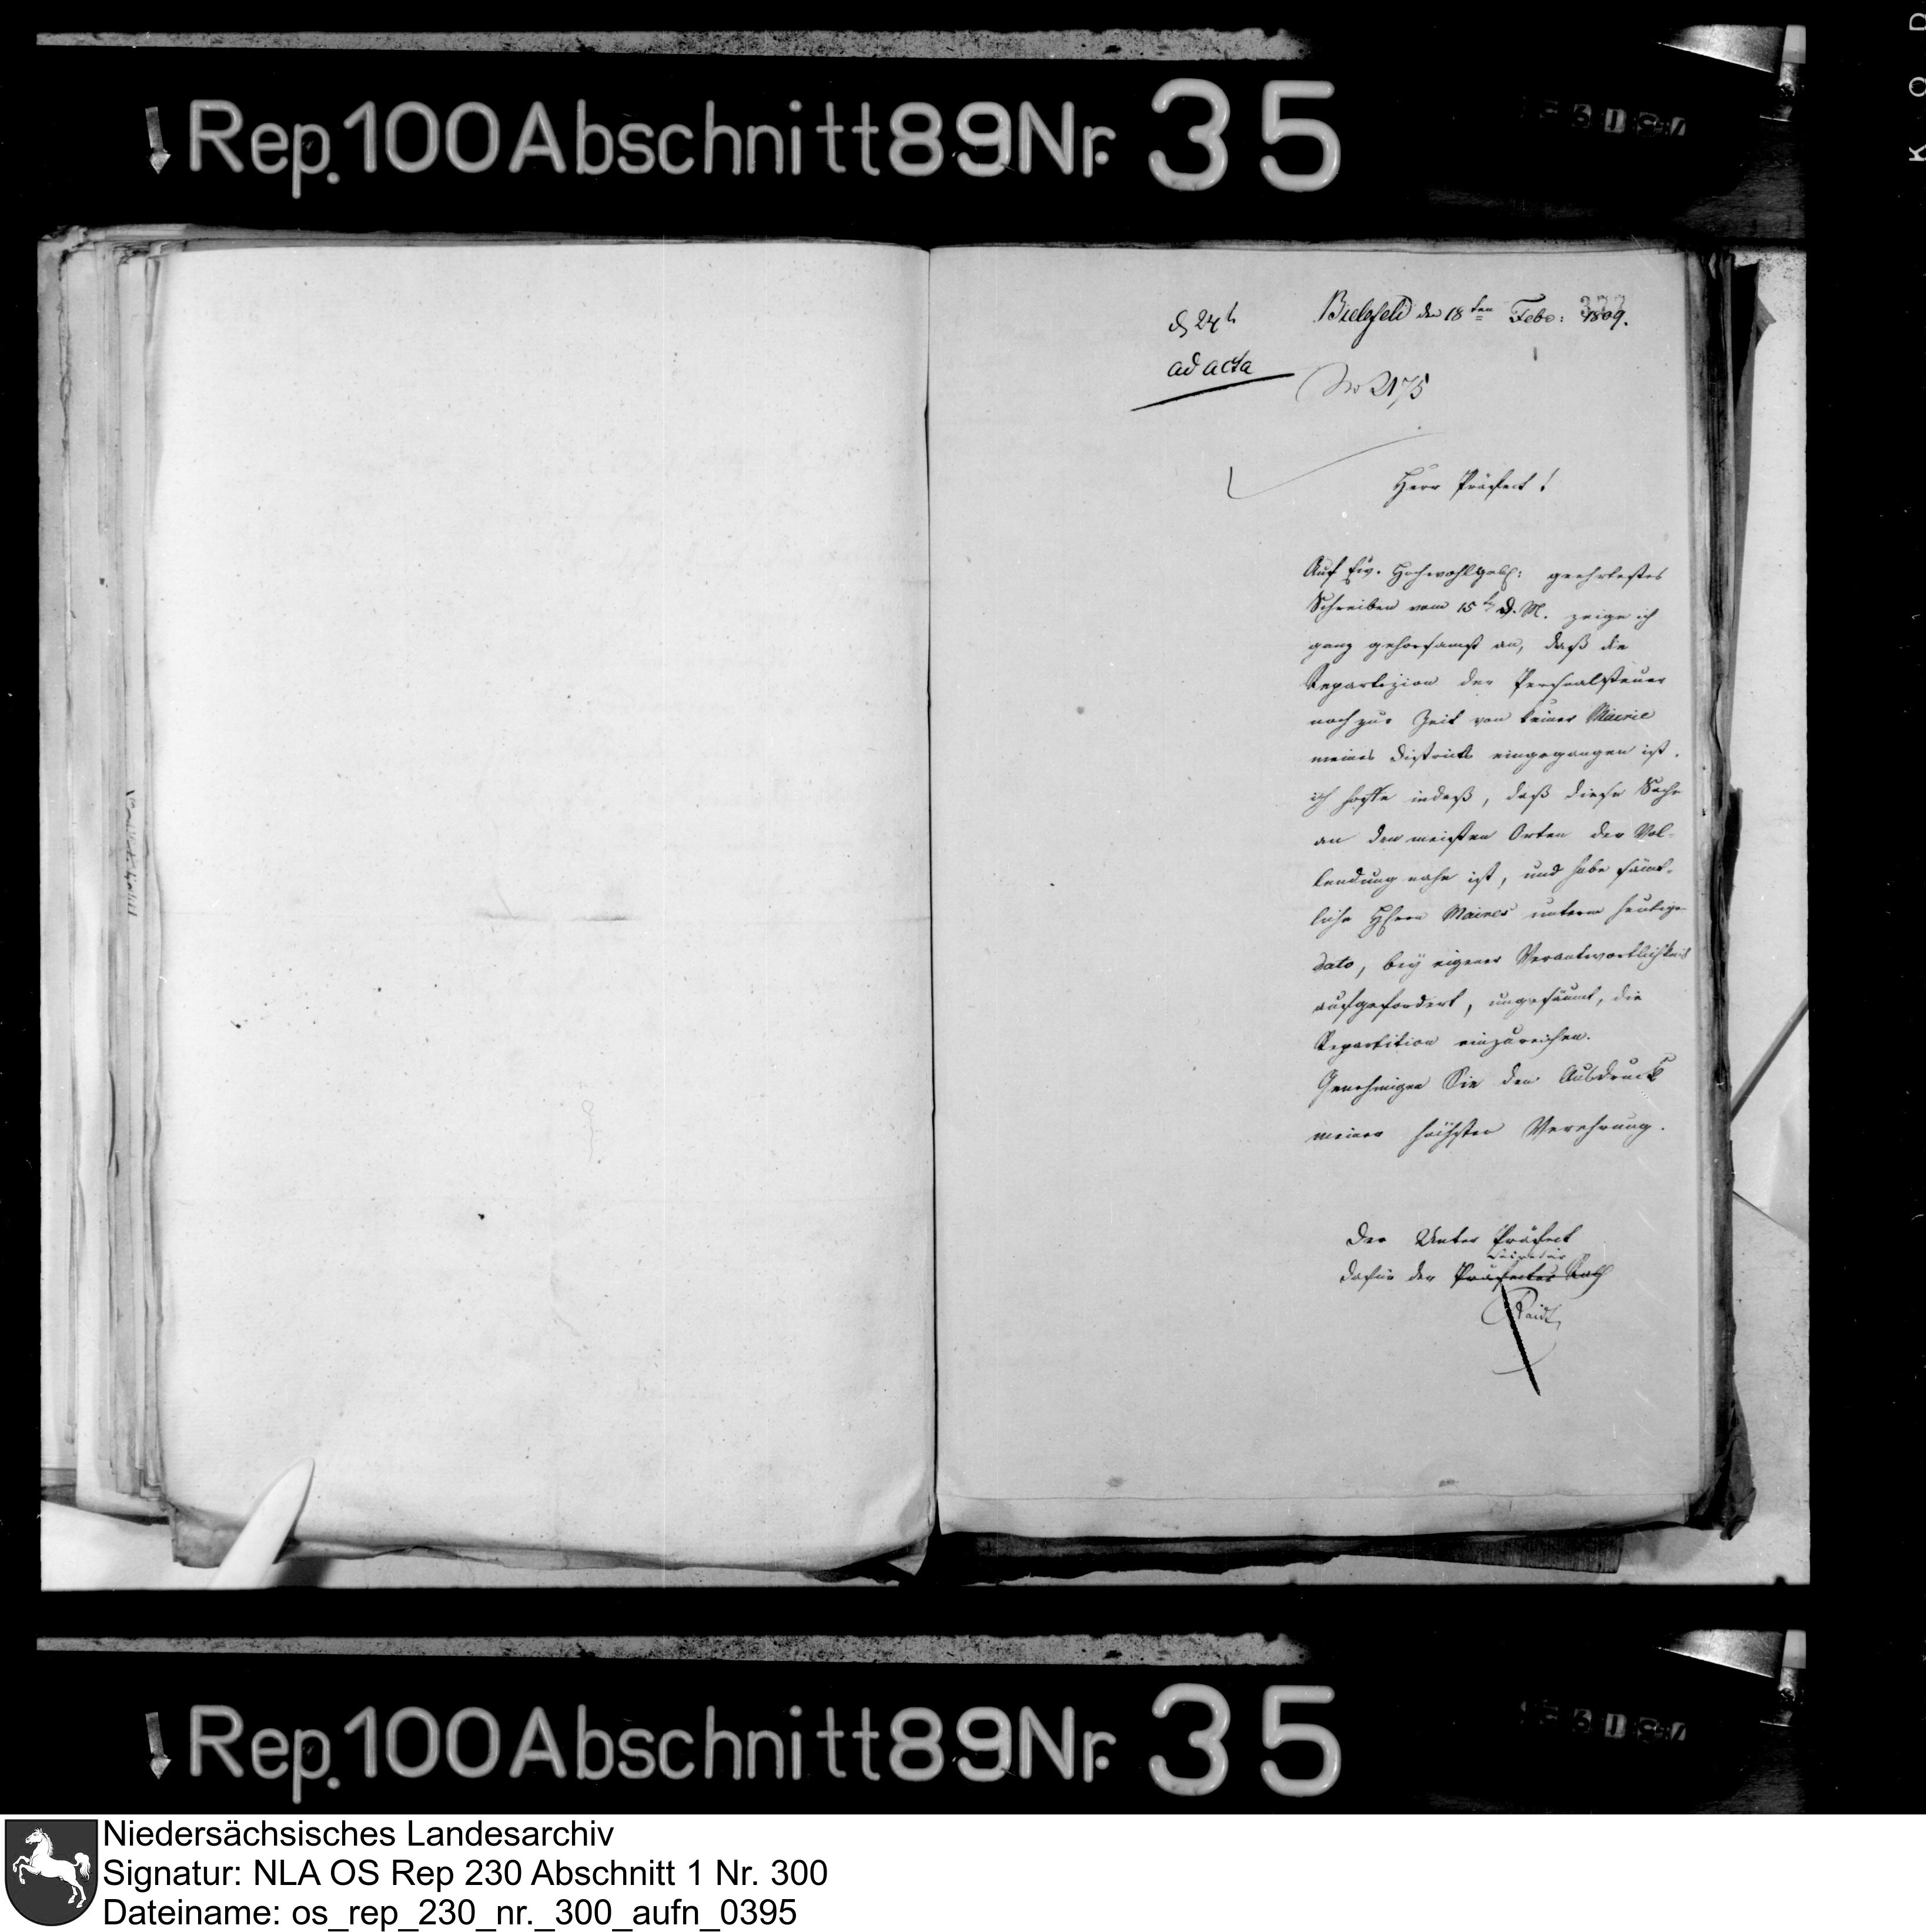 Rep. 100 Abschnitt 89 Nr. 35
Bielefeld den 18ten Febr: 1809.
ad acta
No 2175
Herr Präfect!
Auf Ew. Hochwohlgeb: geehrtestes
Schreiben vom 15t d. M. zeige ich
ganz gehorsamst an, daß die
Repartizion der Personalsteuer
noch zur Zeit von keiner Mairie
meines Districts eingegangen ist.
ich hoffe indeß, daß diese Sache
an den meisten Orten der Vol-
lendung nahe ist, und habe sämt-
liche HHerrn Maires unterm heutigen
dato, bey eigener Verantwortlichkeit
aufgefordert, ungesäumt, die
Repartition einzureichen.
Genehmigen Sie den Ausdruck
meiner höchsten Verehrung.
Der Unter Präfect
Secretair
dafür der Präfectur Rath
Rep. 100 Abschnitt 89 Nr. 35
Niedersächsisches Landesarchiv
Signatur: NLA OS Rep 230 Abschnitt 1 Nr. 300
Dateiname: os_rep_230_nr._300_aufn_0395